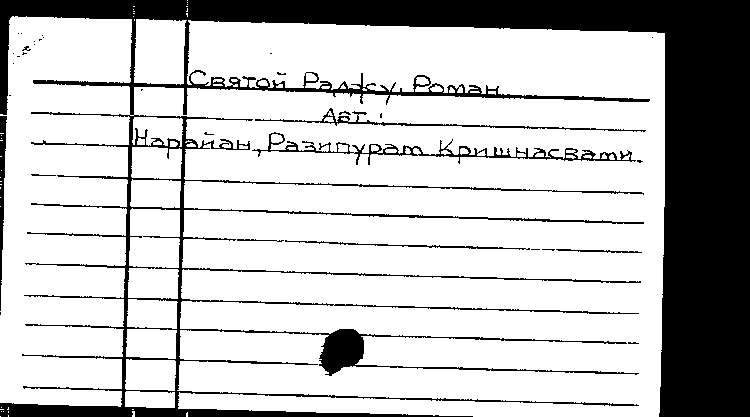 Святой Раджу. Роман.
Авт.:
Нарайан, Разипурам Кришнасвами.